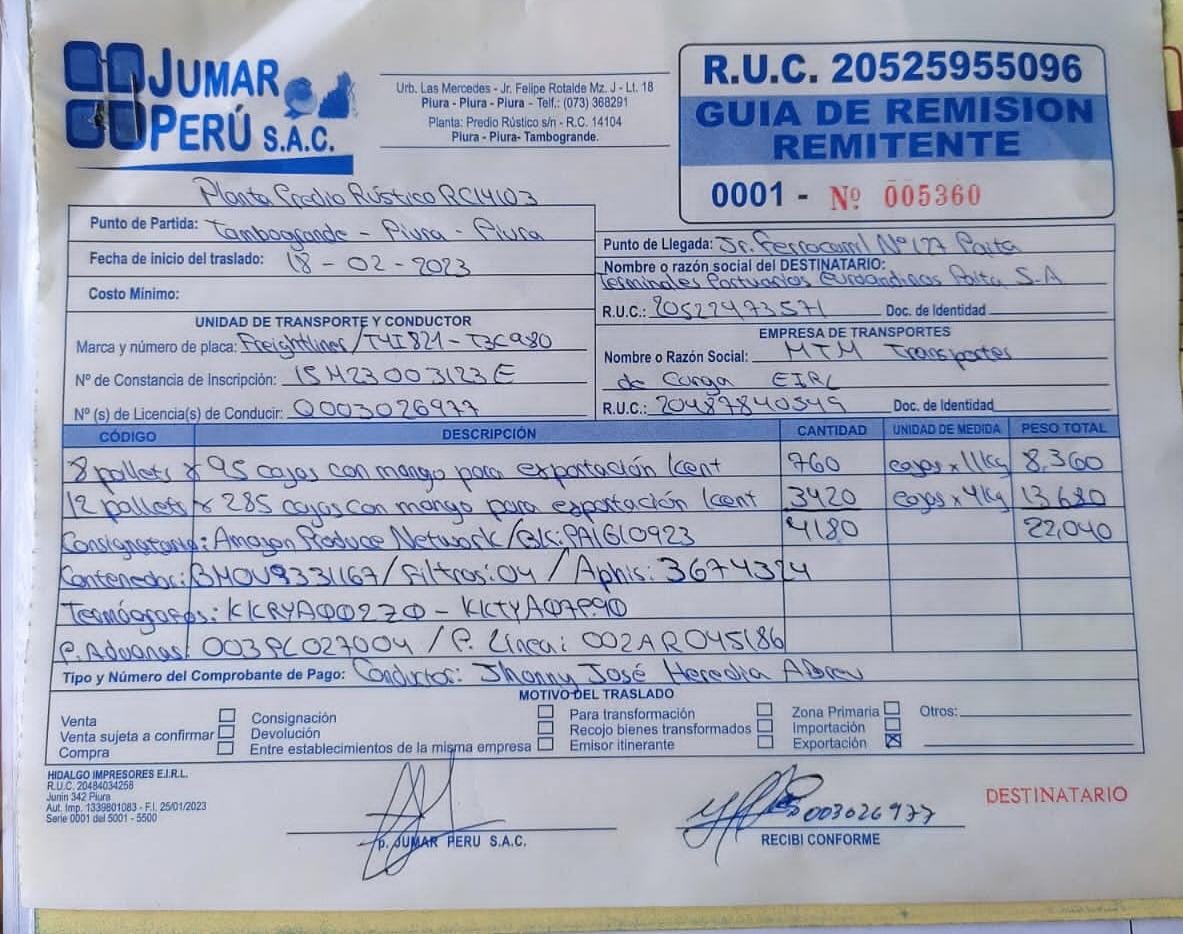 JUMAR
PERÚ S.A.C.
Urb. Las Mercedes - Jr. Felipe Rotalde Mz. J - Lt. 18
Piura - Piura - Piura - Telf.: (073) 368291
Planta: Predio Rústico s/n - R.C. 14104
Piura - Piura- Tambogrande.
R.U.C. 20525955096
GUIA DE REMISION
REMITENTE
0001 - Nº 005360
Planta Predio Rústico RC14103
Punto de Partida: Tambogrande - Piura - Piura
Fecha de inicio del traslado: 18 - 02 - 2023
Costo Mínimo:
Punto de Llegada: Jr. Ferrocarril Nº 127 Paita
Nombre o razón social del DESTINATARIO:
Terminales Portuarios Euroandinos Paita S.A
R.U.C.: 20522473571 Doc. de Identidad
UNIDAD DE TRANSPORTE Y CONDUCTOR
Marca y número de placa: Freightliner/T4I821 - T3C980
Nº de Constancia de Inscripción: 15M23003123E
Nº (s) de Licencia(s) de Conducir: Q003026977
EMPRESA DE TRANSPORTES
Nombre o Razón Social: MTM Transportes
de Carga EIRL
R.U.C.: 20487840549 Doc. de Identidad
CÓDIGO DESCRIPCIÓN CANTIDAD UNIDAD DE MEDIDA PESO TOTAL
8 pallets x 95 cajas con mango para exportación kent 760 cajas x 11kg 8,360
12 pallets x 285 cajas con mango para exportación kent 3420 cajas x 4kg 13,680
Consignatario: Amazon Produce Network/BK: PA1610923 4180 22,040
Contenedor: BMOU9331167/Filtros: 04 / Aphis: 3674324
Termógrafos: KKRYA00220 - KKTYA07P90
P. Aduanas: 003PC027004 / P. Línea: 002AR045186
Tipo y Número del Comprobante de Pago: Conductor: Jhonny José Heredia Abreu
MOTIVO DEL TRASLADO
Venta
Venta sujeta a confirmar
Compra
Consignación
Devolución
Entre establecimientos de la misma empresa
Para transformación
Recojo bienes transformados
Emisor itinerante
Zona Primaria
Importación
Exportación
Otros:
HIDALGO IMPRESORES E.I.R.L.
R.U.C. 20484034258
Junin 342 Piura
Aut. Imp. 1339801083 - F.I. 25/01/2023
Serie 0001 del 5001 - 5500
p. JUMAR PERU S.A.C.
003026977
RECIBI CONFORME
DESTINATARIO